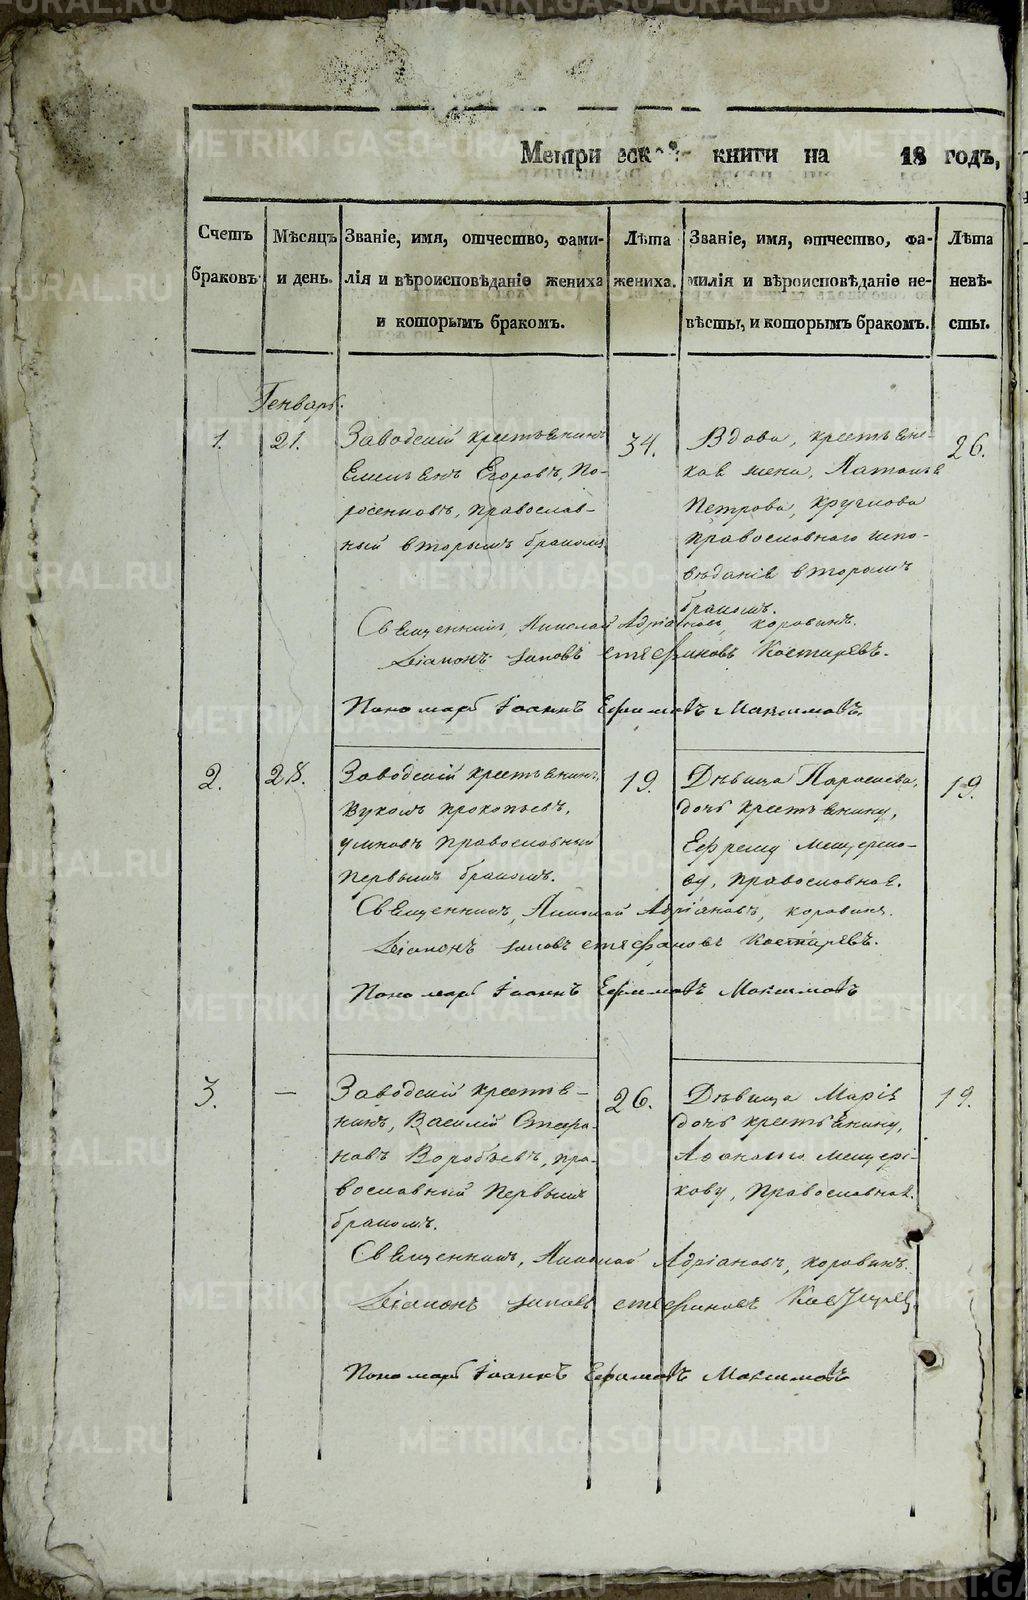 Метрической книги на 18 годъ,
Счетъ браковъ.
Мѣсяцъ и день.
Званіе, имя, отчество, фами-
лія и вѣроисповѣданіе жениха
и которымъ бракомъ.
Лѣта
жениха.
Званіе, имя, отчество, фа-
милія и вѣроисповѣданіе не-
вѣсты, и которымъ бракомъ.
Лѣта
невѣ-
сты.
Генварь.
1.
21.
Заводскій крестьянинъ
Емельянъ Егоровъ, По-
росенковъ, православ-
ный вторымъ бракомъ
34.
Вдова, крестьянс-
кая жена, Наталья
Петрова, Круглова
православнаго испо-
вѣданія вторымъ
бракомъ.
26.
Священникъ, Николай Адріановъ, Коровинъ.
Діаконъ Іаковъ Стефановъ Костыревъ.
Пономарь Іоаннъ Ефимовъ Максимовъ.
2.
28.
Заводскій крестьянинъ,
Вуколъ Прокопьевъ,
Умновъ православный
первымъ бракомъ.
19.
Дѣвица Параскева,
дочь крестьянину,
Ефрему Мещеряко-
ву, православная.
19.
Священникъ, Николай Адріановъ, Коровинъ.
Діаконъ Іаковъ Стефановъ Костыревъ.
Пономарь Іоаннъ Ефимовъ Максимовъ
3.
—
Заводскій крестья-
нинъ, Василій Стефа-
новъ Воробьевъ, пра-
вославный первымъ
бракомъ.
26.
Дѣвица Марія
дочь крестьянину,
Мещеря-
кову, Православная.
19.
Священникъ, Николай Адріановъ, Коровинъ.
Діаконъ Іаковъ Стефановъ Костыревъ.
Пономарь Іоаннъ Ефимовъ Максимовъ
METRIKI.GASO-URAL.RU